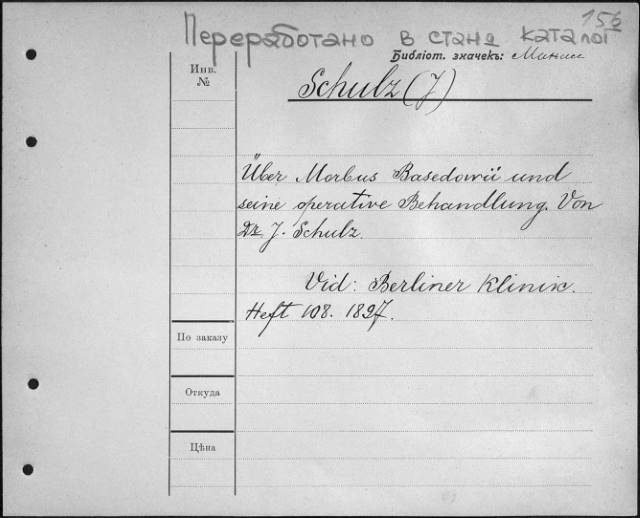 156
Переработано в стана каталог
Библіот. значекъ:
Инв.
№
Schulz (J)
Über Morbus Basedowii und
seine operative Behandlung. Von
Dr J. Schulz.
Vid: Berliner Klinik.
Heft 108. 1897.
По заказу
Откуда
Цѣна